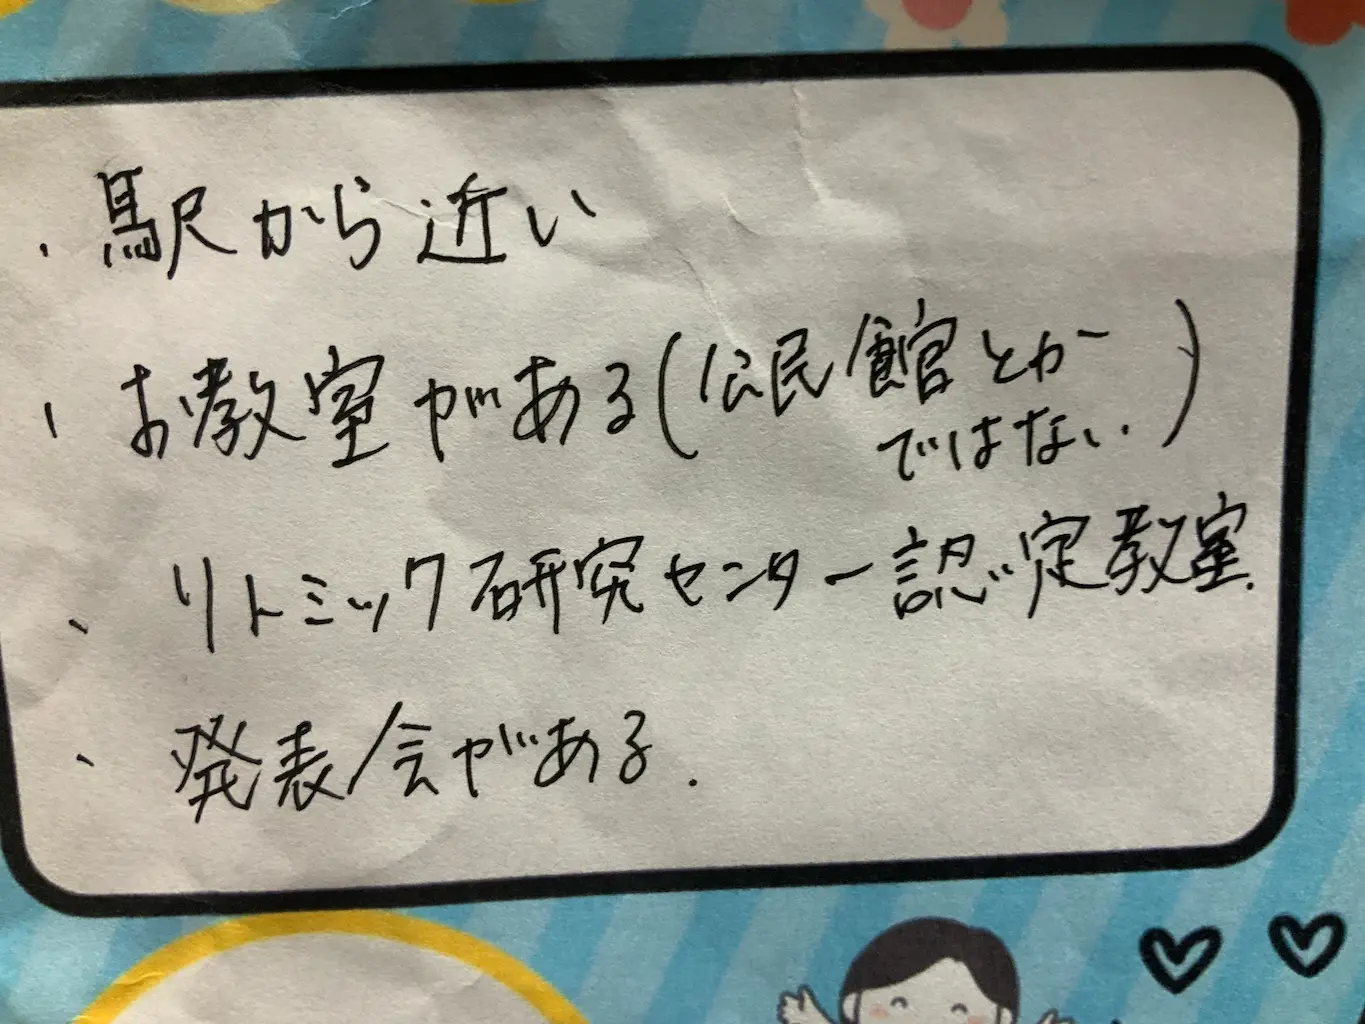 ・駅から近い
・お教室がある(公民館とか
ではない.)
・リトミック研究センター認定教室.
・発表会がある.